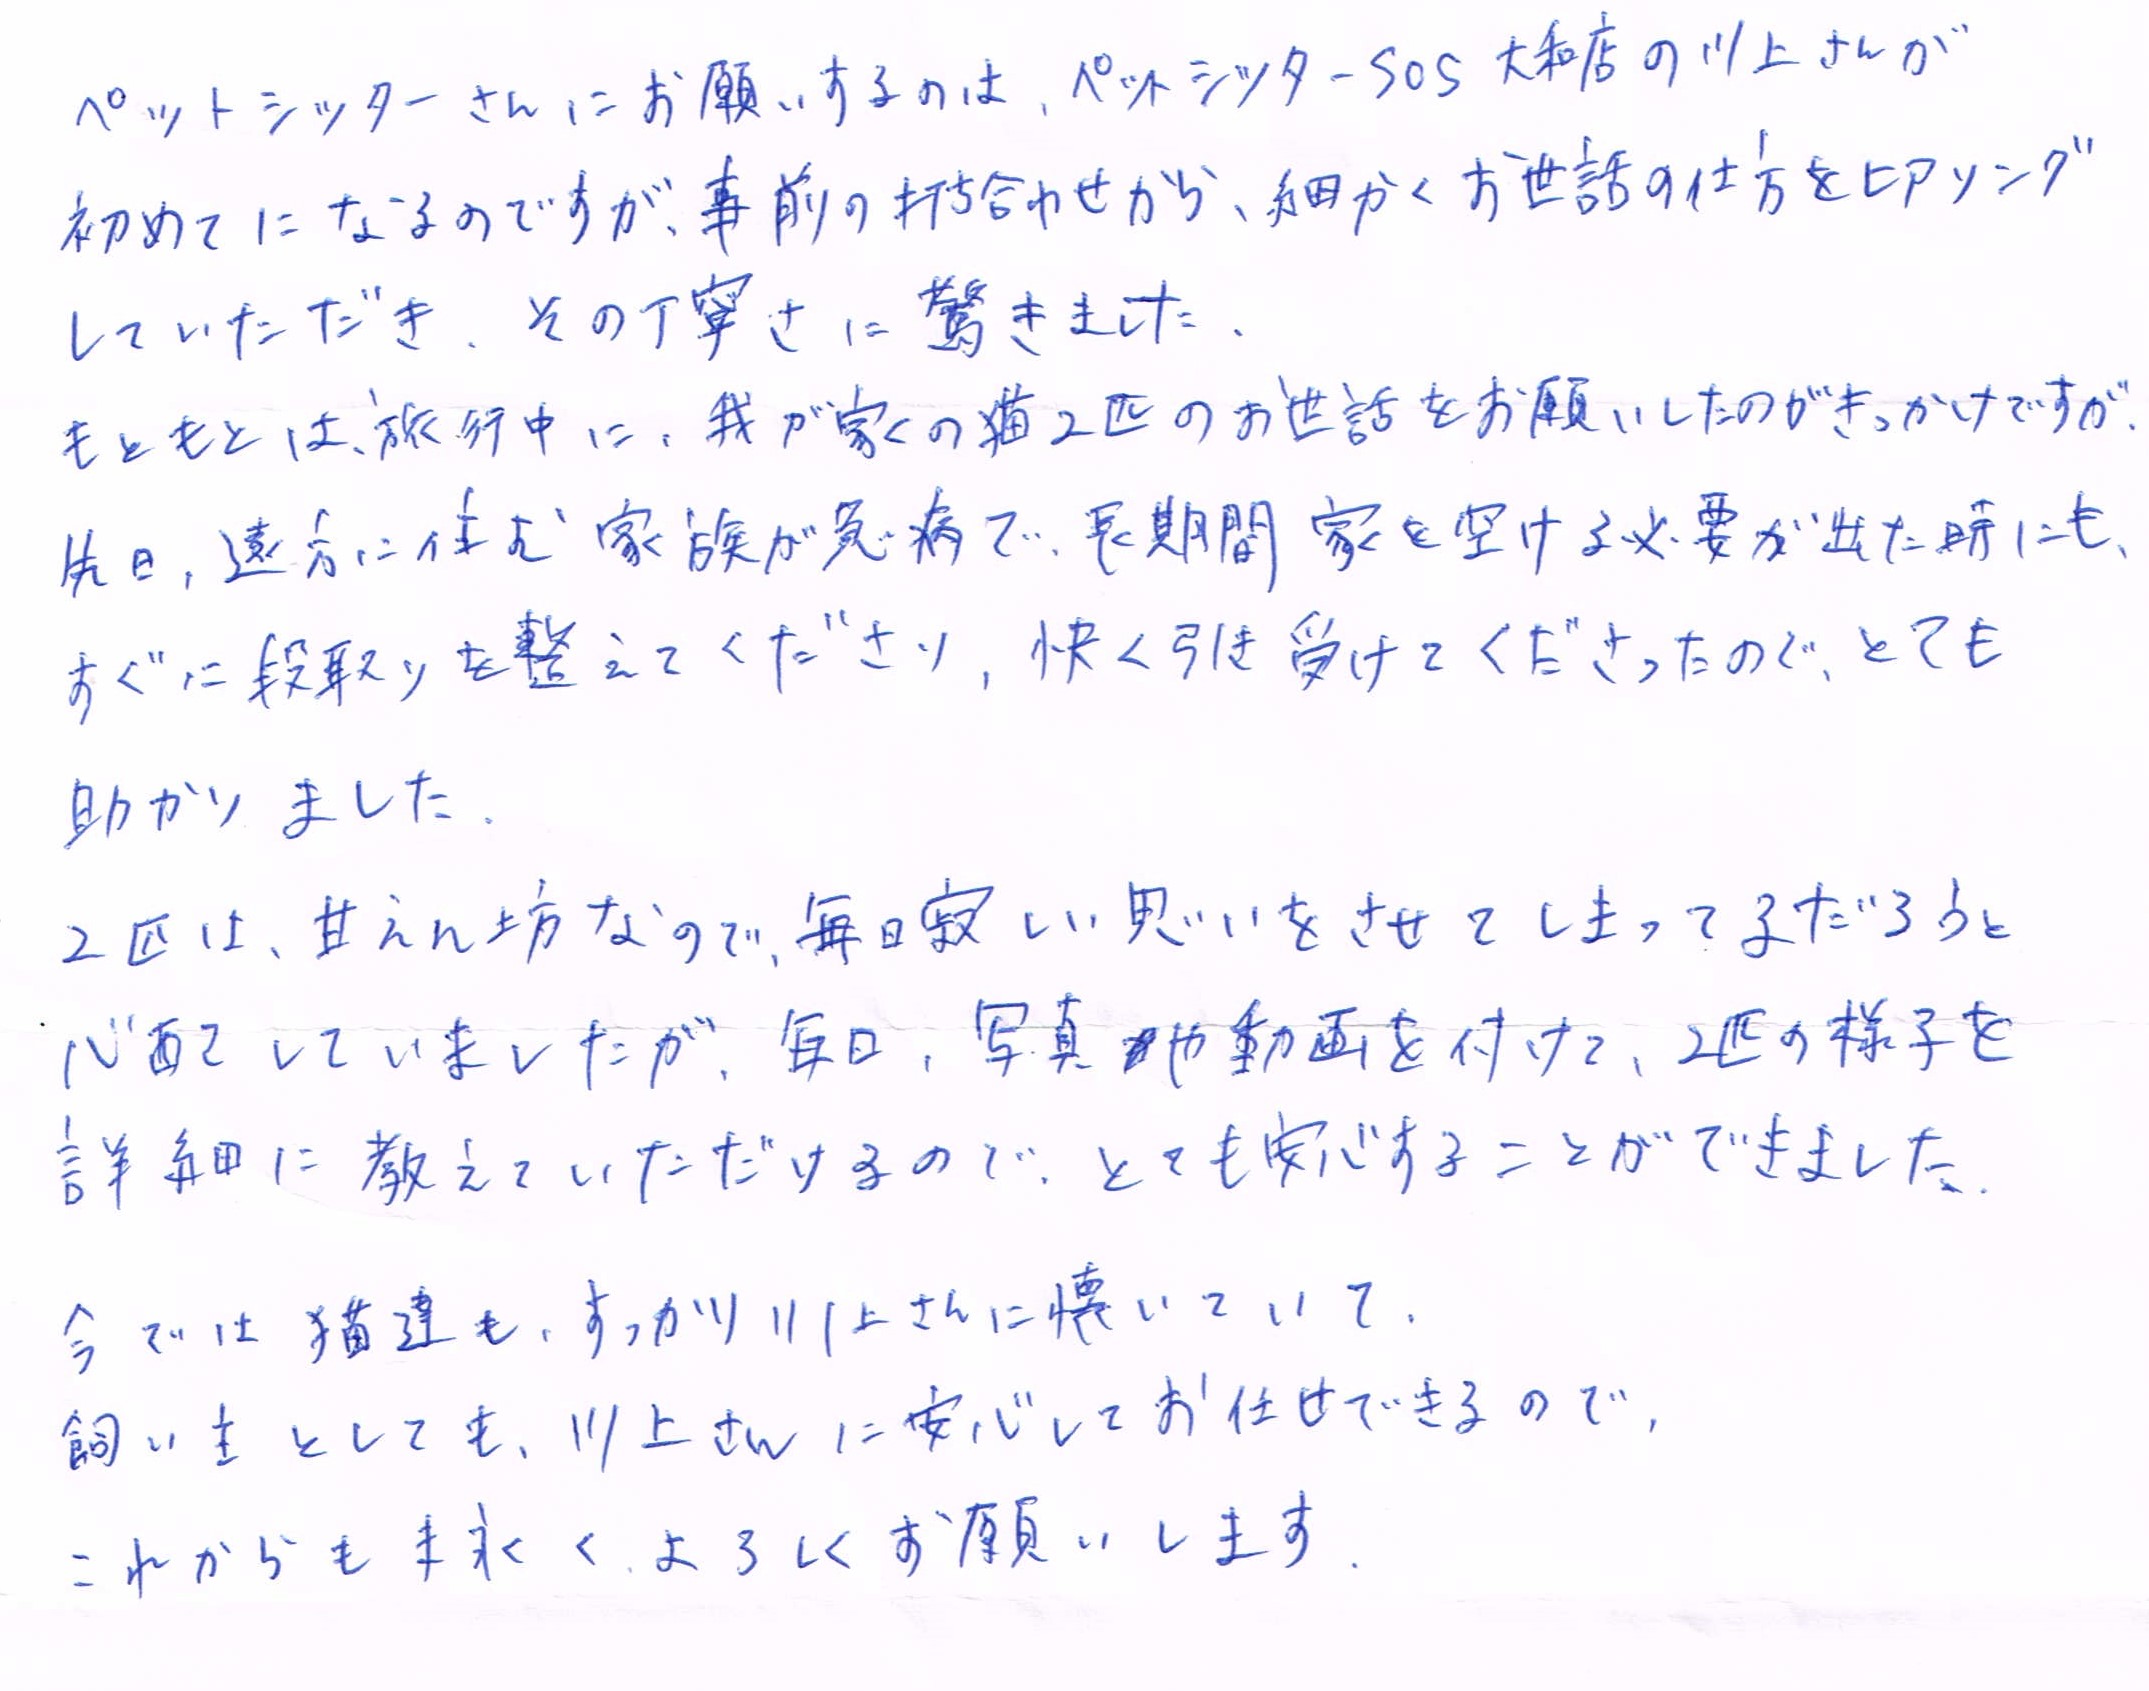 ペットシッターさんにお願いするのは、ペットシッターSOS 大和店の川上さんが
初めてになるのですが、事前の打ち合わせから、細かくお世話の仕方をヒアリング
していただき、その丁寧さに驚きました。
もともとは、旅行中に、我が家の猫2匹のお世話をお願いしたのがきっかけですが、
先日、遠方に住む家族が急病で、長期間家を空ける必要が出た時にも、
すぐに段取りを整えてくださり、快く引き受けてくださったので、とても
助かりました。
2匹は、甘えん坊なので、毎日寂しい思いをさせてしまってるだろうと
心配していましたが、毎日、写真や動画を付けて、2匹の様子を
詳細に教えていただけるので、とても安心することができました。
今では猫達も、すっかり川上さんに懐いていて、
飼い主としても、川上さんに安心してお任せできるので、
これからも末永く、よろしくお願いします。